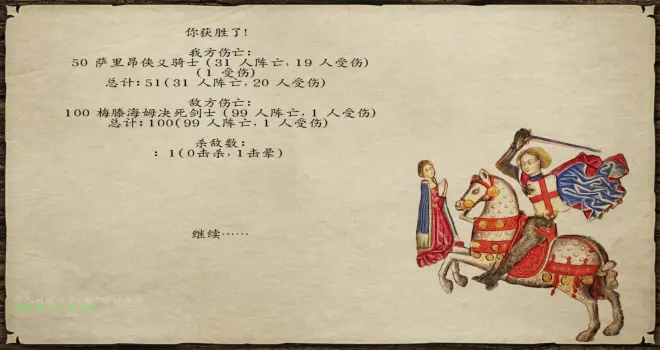 你获胜了!
我方伤亡:
50 萨里昂侠义骑士 (31 人阵亡, 19 人受伤)
(1 受伤)
总计: 51(31 人阵亡, 20 人受伤)
敌方伤亡:
100 梅滕海姆决死剑士 (99 人阵亡, 1 人受伤)
总计: 100(99 人阵亡, 1 人受伤)
杀敌数:
: 1(0击杀, 1击晕)
继续……